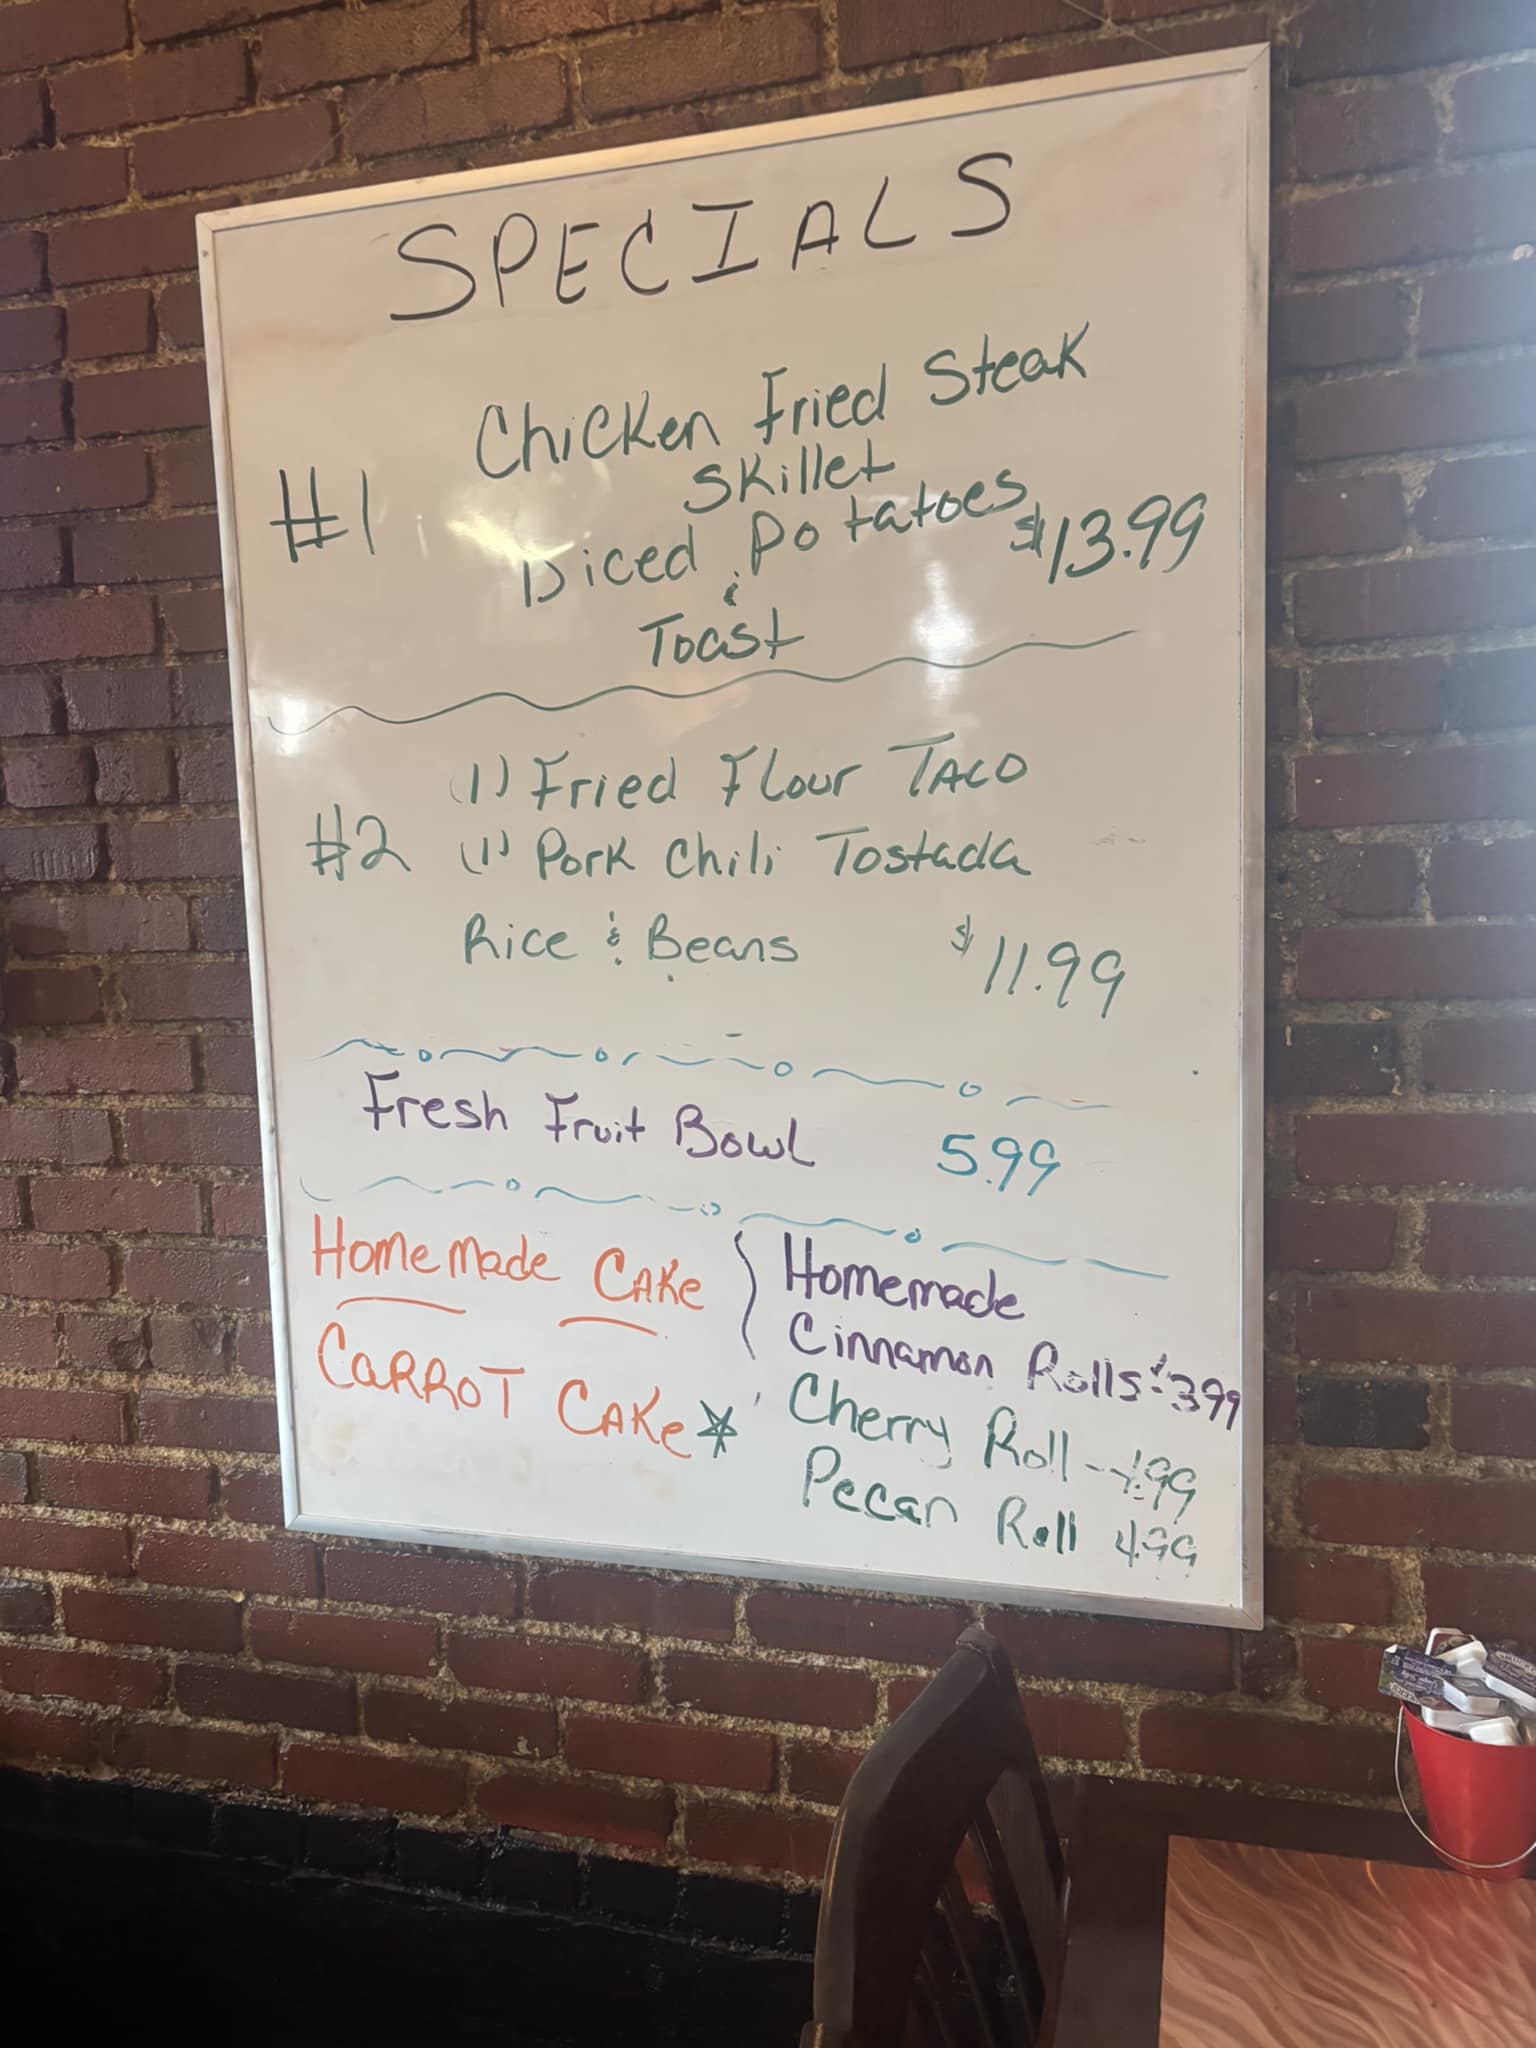 SPECIALS
#1
Chicken Fried Steak
Skillet
Diced Potatoes $13.99
&
Toast
#2
(1) Fried Flour TACO
(1) Pork Chili Tostada
Rice & Beans $11.99
Fresh Fruit Bowl 5.99
Homemade Cake
CARROT CAKe
Homemade
Cinnamon Rolls $3.99
Cherry Roll - 4.99
Pecan Roll 4.99